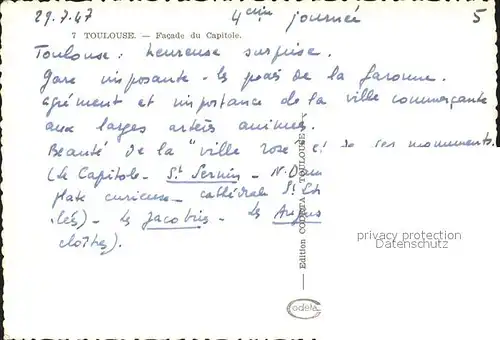 29.7.47 4eme journée 5
7 TOULOUSE. — Façade du Capitole.
Toulouse : heureuse surprise.
Gare imposante - les de la Garonne.
agrément et importance de la ville commerçante
aux larges artères animées.
Beauté de la "ville rose" et de ses monuments.
(Le Capitole - St Sernin - N. Dam
curieuse - cathédrale St Et
- les Jacobins - les Augus
cloîtres).
Edition CODETA - TOULOUSE
privacy protection
Datenschutz
Codeta